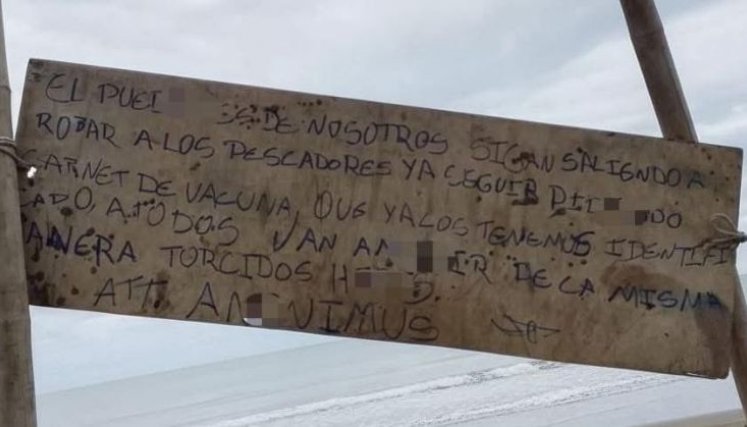 EL DE NOSOTROS SIGAN SALIENDO A
ROBAR A LOS PESCADORES YA SEGUIR
CARNET DE VACUNA, QUE YA LOS TENEMOS IDENTIFI
CADO, A TODOS VAN A DE LA MISMA
ANERA TORCIDOS
ATT.